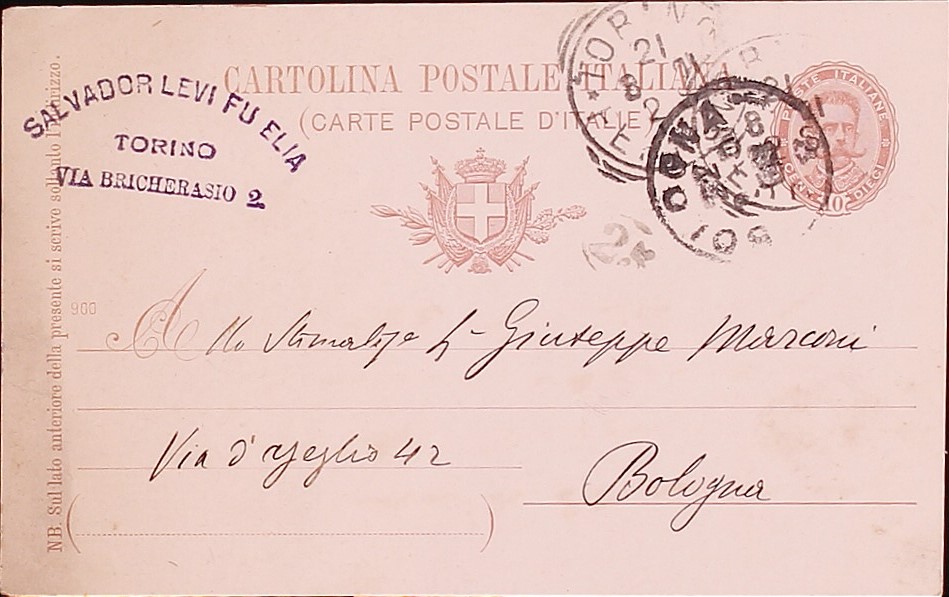 CARTOLINA POSTALE ITALIANA
(CARTE POSTALE D'ITALIE)
SALVADOR LEVI FU ELIA
TORINO
VIA BRICHERASIO 2
TORINO
21
8
POSTE ITALIANE
CENT. 10 DIECI
900
Allo Stimatiss. Sr Giuseppe Marconi
Via d'Azeglio 42
Bologna
NB. Sul lato anteriore della presente si scrive soltanto l'indirizzo.